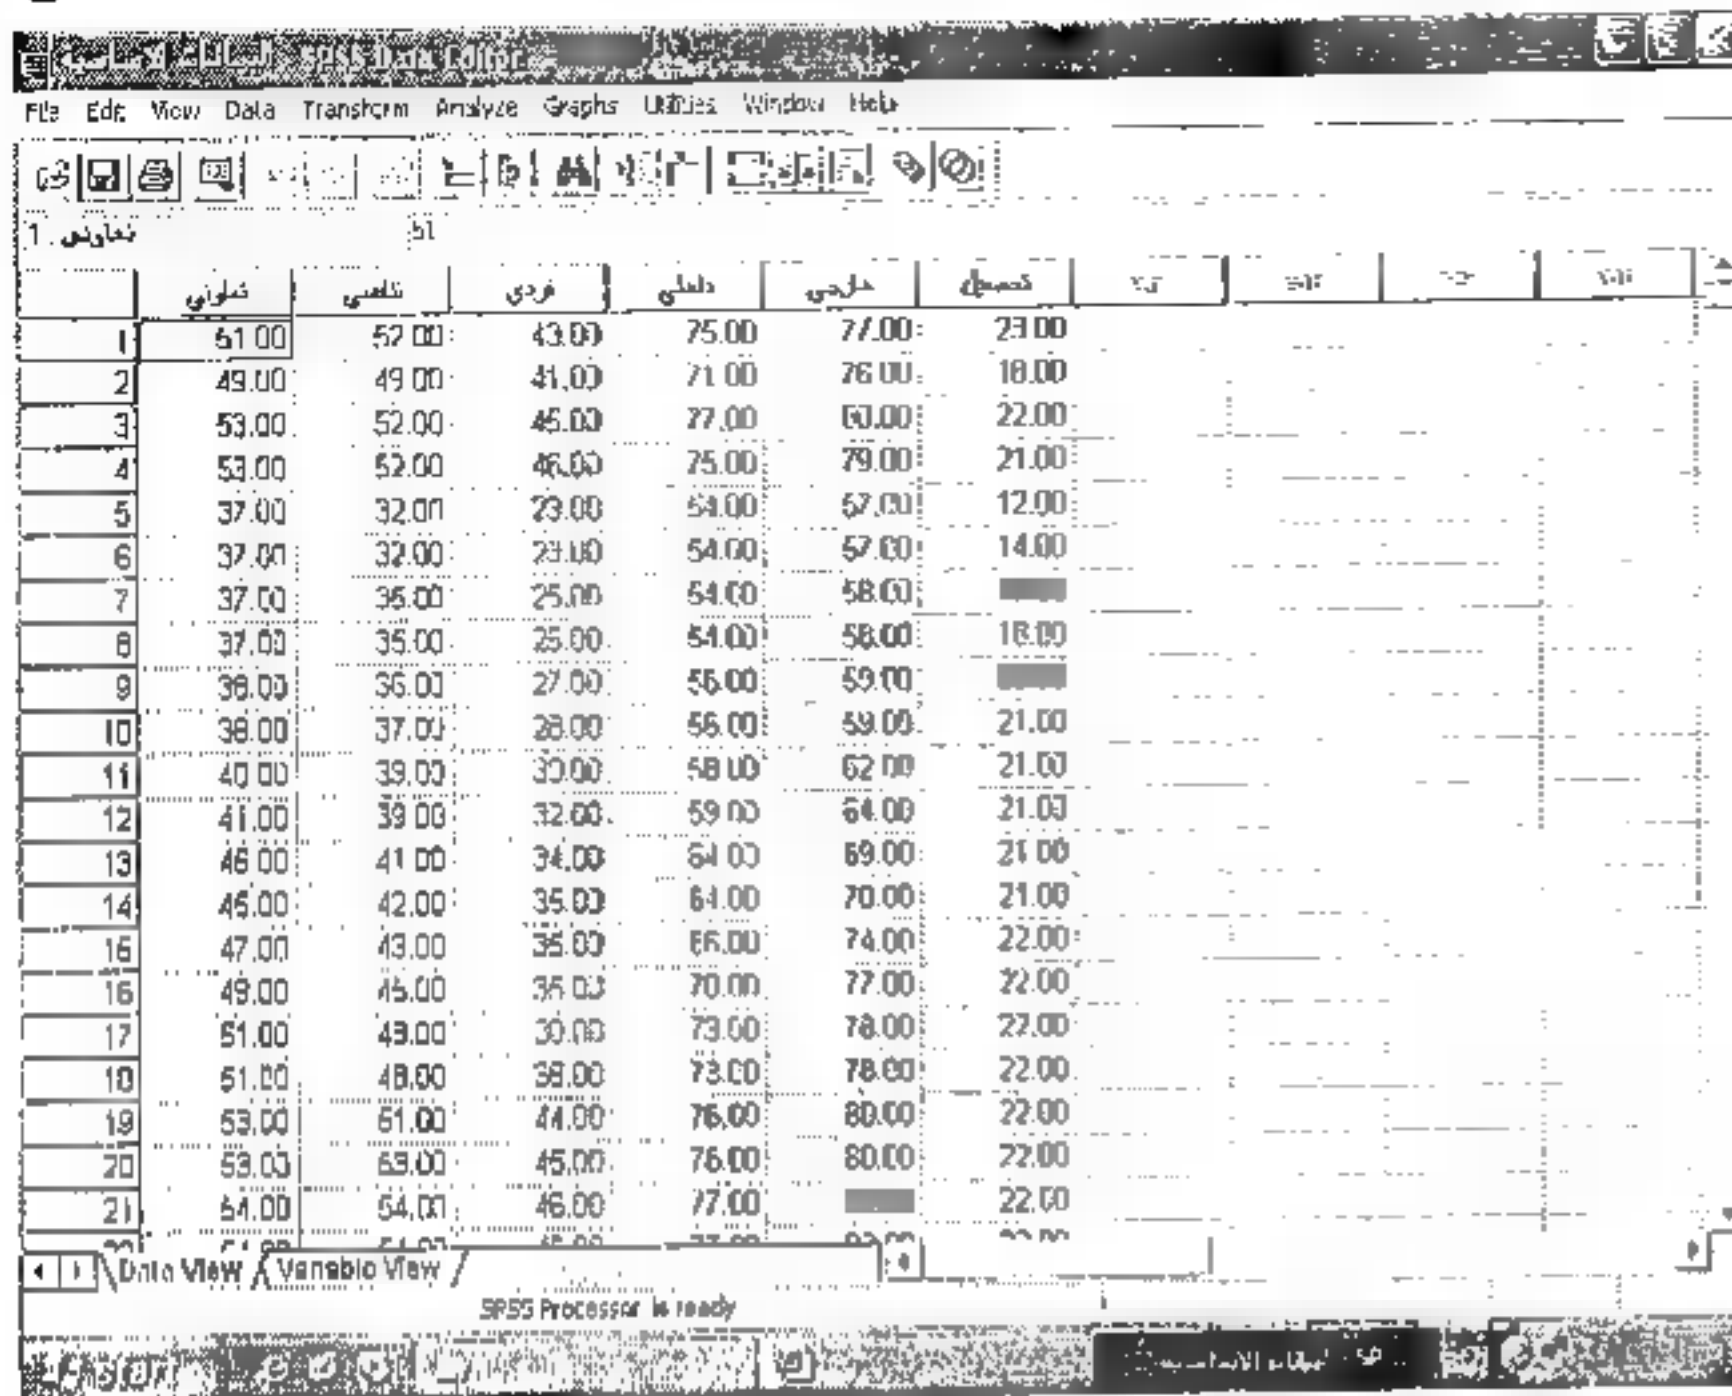 SPSS Data Editor
File Edit View Data Transform Analyze Graphs Utilities Window Help
1 : تعاوني 51
تعاوني تنافسي فردي داخلي خارجي تحصيل var var var var
1 51.00 52.00 43.00 75.00 77.00 23.00
2 49.00 49.00 41.00 71.00 76.00 18.00
3 53.00 52.00 45.00 77.00 22.00
4 53.00 52.00 46.00 75.00 79.00 21.00
5 37.00 32.00 23.00 54.00 57.00 12.00
6 37.00 32.00 23.00 54.00 57.00 14.00
7 37.00 35.00 25.00 54.00 58.00
8 37.00 35.00 25.00 54.00 58.00 18.00
9 38.00 36.00 27.00 55.00 59.00
10 38.00 37.00 28.00 56.00 59.00 21.00
11 40.00 39.00 30.00 58.00 62.00 21.00
12 41.00 39.00 32.00 59.00 64.00 21.00
13 46.00 41.00 34.00 64.00 69.00 21.00
14 45.00 42.00 35.00 64.00 70.00 21.00
15 47.00 43.00 35.00 66.00 74.00 22.00
16 49.00 45.00 35.00 70.00 77.00 22.00
17 51.00 48.00 73.00 78.00 22.00
18 51.00 48.00 38.00 73.00 78.00 22.00
19 53.00 51.00 44.00 76.00 80.00 22.00
20 53.00 53.00 45.00 76.00 80.00 22.00
21 54.00 54.00 46.00 77.00 22.00
Data View Variable View
SPSS Processor is ready
start